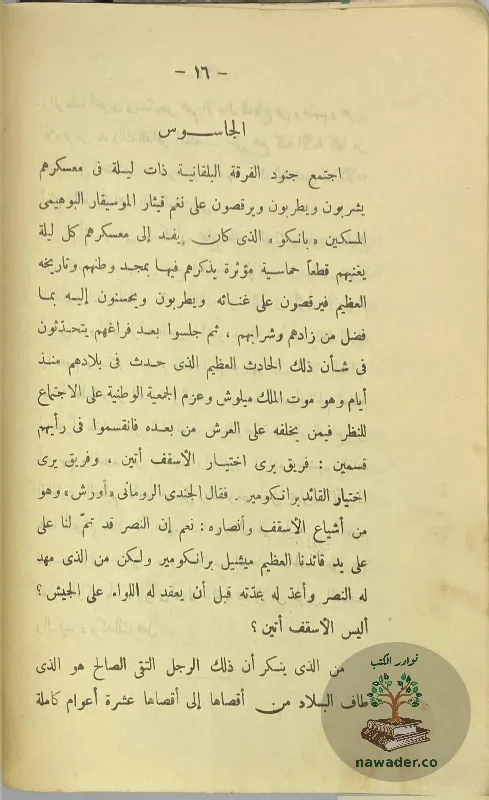 - ١٦ -
الجاسوس
اجتمع جنود الفرقة البلقانية ذات ليلة فى معسكرهم
يشربون ويطربون ويرقصون على نغم قيثار الموسيقار البوهيمى
المسكين «بانكو» الذى كان يفد إلى معسكرهم كل ليلة
يغنيهم قطعاً حماسية مؤثرة يذكرهم فيها بمجد وطنهم وتاريخه
العظيم فيرقصون على غنائه ويطربون ويحسنون إليه بما
فضل من زادهم وشرابهم ، ثم جلسوا بعد فراغهم يتحدّثون
فى شأن ذلك الحادث العظيم الذى حدث فى بلادهم منذ
أيام وهو موت الملك ميلوش وعزم الجمعية الوطنية على الاجتماع
للنظر فيمن يخلفه على العرش من بعده فانقسموا فى رأيهم
قسمين : فريق يرى اختيار الأسقف أتين ، وفريق يرى
اختيار القائد برانكومير . فقال الجندى الرومانى «أورش» وهو
من أشياع الأسقف وأنصاره : نعم إن النصر قد تمّ لنا على
على يد قائدنا العظيم ميشيل برانكومير ولكن من الذى مهد
له النصر وأعدّ له عدّته قبل أن يعقد له اللواء على الجيش ؟
أليس الأسقف أتين ؟
من الذى ينكر أن ذلك الرجل التقى الصالح هو الذى
طاف البلاد من أقصاها إلى أقصاها عشرة أعوام كاملة
نوادر الكتب
nawader.co